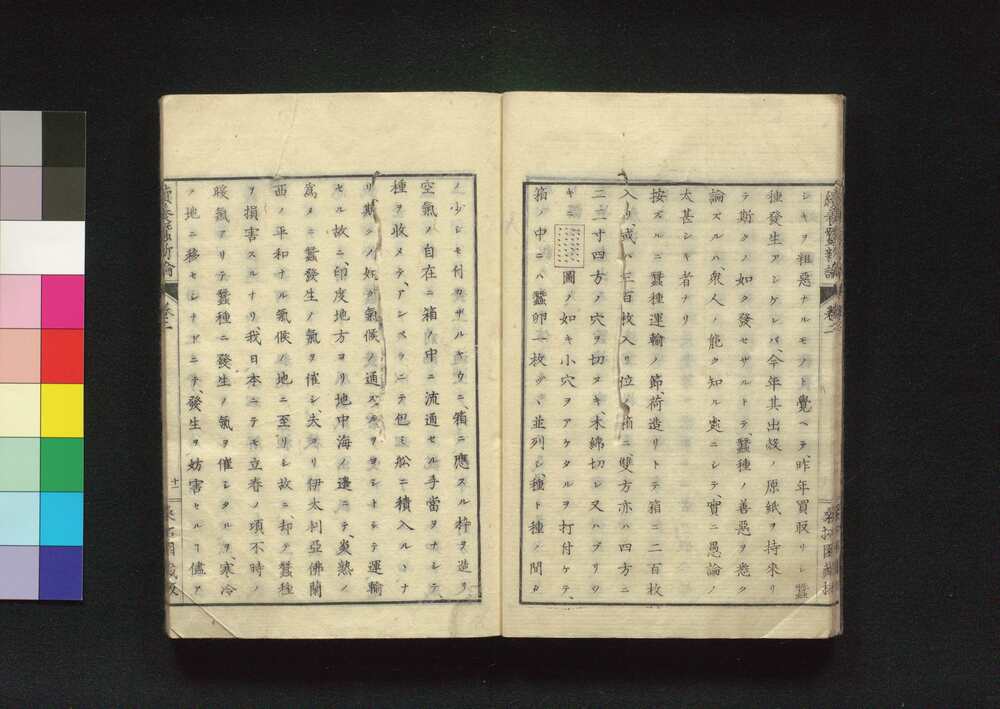 シキヲ粗惡ナルモノト覺ヘテ、昨年買取リシ蠶
種發生アシケレバ、今年其出殼ノ原紙ヲ持來リ
テ斯クノ如ク發セザルトテ、蠶種ノ善惡ヲ悉ク
論ズルハ、衆人ノ能ク知ル処ニシテ、實ニ愚論ノ
太甚シキ者ナリ
按ズルニ蠶種運輸ノ節、荷造リトテ箱ニ二百枚
入リ、或ハ三百枚入リ位ノ箱ニ雙方亦ハ四方ニ
二三寸四方ノ穴ヲ切ヌキ、木綿切レ又ハブリツ
キニ圖ノ如キ小穴ヲアケタルヲ打付ケテ、
箱ノ中ニハ蠶卵一枚ヅヽ並列シ、種ト種ノ間タ
續養蠶新論
卷二
ノ少シモ付カザルヤウニ、箱ニ應スル枠ヲ造リ
空氣ノ自在ニ箱ノ中ニ流通セル手當ヲナシテ、
種ヲ收メテ、アンペラニテ但ミ舩ニ積入ルヽナ
リ、斯シノ如ク氣候ノ通スルヲヨシトシテ運輸
セル故ニ、印度地方ヨリ地中海ノ邊ニテ、炎熱ノ
爲メニ蠶發生ノ氣ヲ催シ、夫ヨリ伊太利亞佛蘭
西ノ平和ナル氣候ノ地ニ至リシ故ニ、却テ蠶種
ヲ損害スルナリ、我日本ニテモ立春ノ頃不時ノ
暖氣アリテ蠶種ニ發生ノ氣ヲ催シタルヲ、寒冷
ノ地ニ移セシナドニテ、發生ヲ妨害セルヿ儘ア
續養蠶新論
卷二
十一